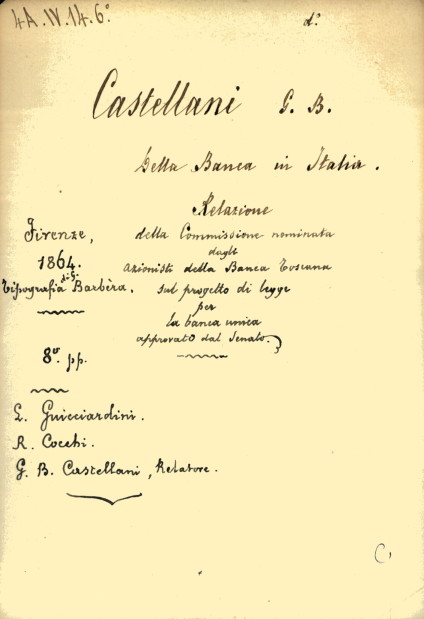 4A.IV.14.6º
dº
Castellani G. B.
Della Banca in Italia.
Relazione
della Commissione nominata
dagli
azionisti della Banca Toscana
sul progetto di legge
per
la banca unica
approvato dal Senato.
Firenze,
1864.
Tipografia di G. Barbèra.
8º. pp.
L. Guicciardini.
R. Cocchi.
G. B. Castellani, Relatore.